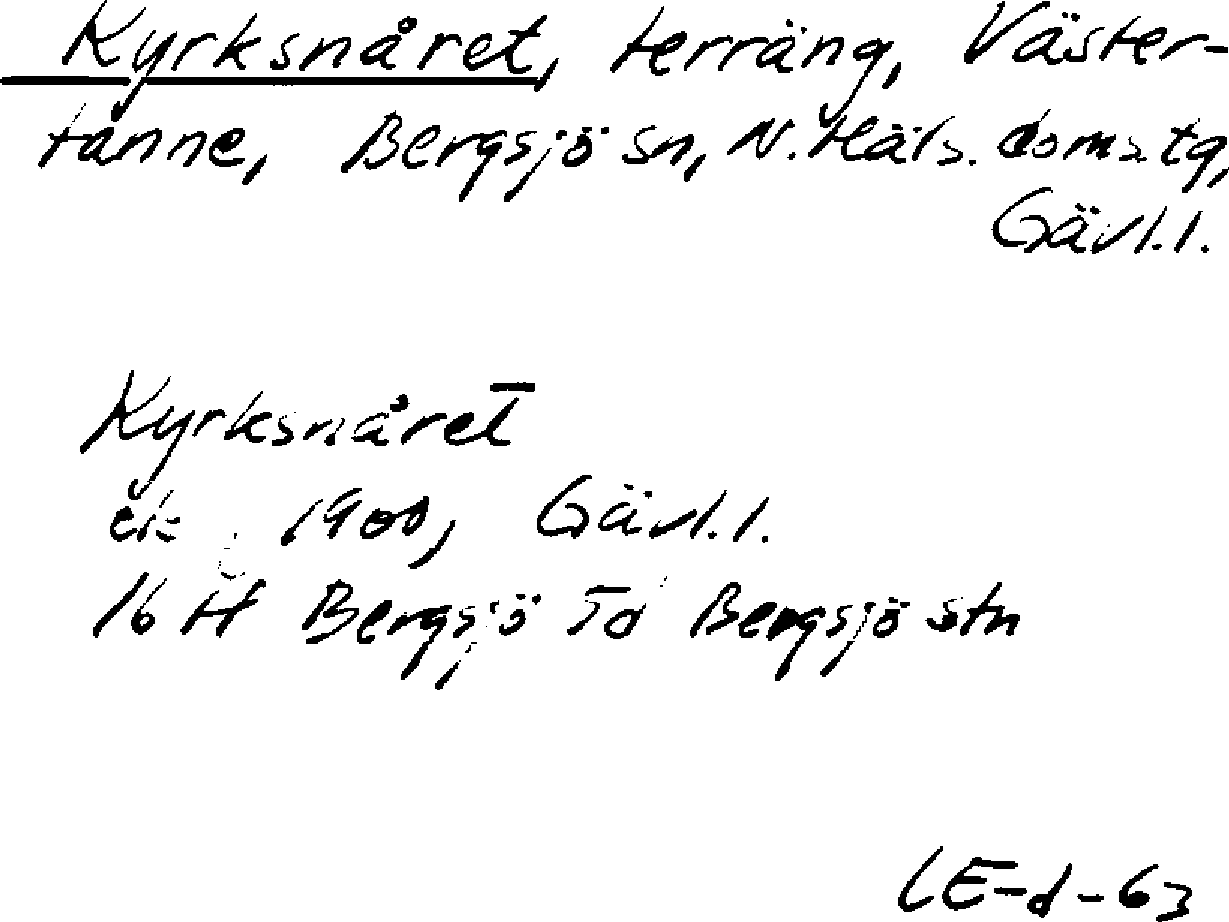 Kyrksnåret, terräng, Väster-
tanne, Bergsjö sn, N. Häls. domstg,
Gävl.l.
Kyrksnåret
ek 1900, Gävl.l.
16 H Bergsjö 5d Bergsjö stn
LE-d-63